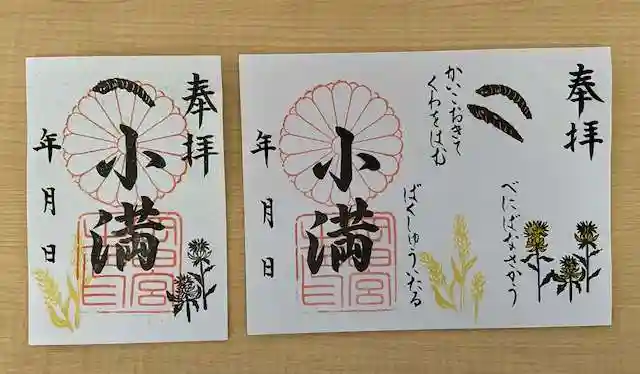 奉拝
小満
年月日
奉拝
かいこおきて
くわをはむ
べにばなさかう
ばくしゅういたる
小満
年月日